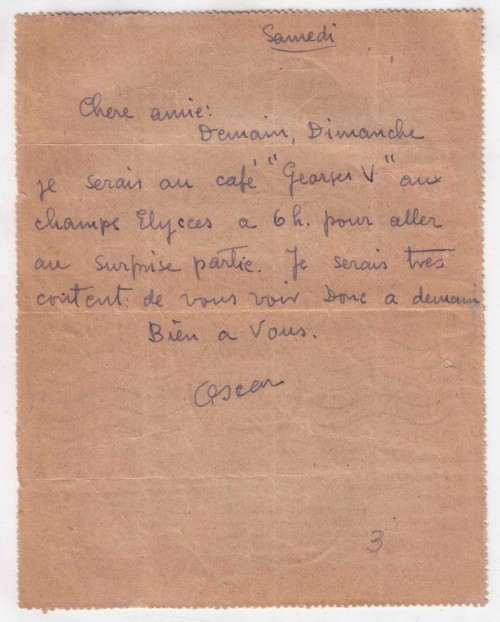 Samedi
Chere amie:
Demain, Dimanche
je serais au café "Georges V" aux
champs Elycces a 6 h. pour aller
au surprise partie. Je serais tres
content de vous voir Donc a demain
Bien a Vous.
Oscar
3